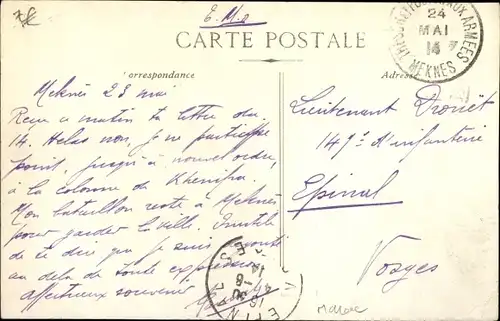 7€
F.M.
CARTE POSTALE
TRESOR ET POSTES AUX ARMEES
24
MAI
14
MEKNES
Correspondance
Adresse
Meknès 23 mai
Reçu ce matin ta lettre du
14. Hélas non, je ne participe
point, jusqu'à nouvel ordre,
à la colonne de Khénifra.
Mon bataillon reste à Meknès
pour garder la ville. Inutile
de te dire que je suis
au delà de toute expression.
Affectueux souvenir
Lieutenant Drouët
149e d'infanterie
Epinal
Vosges
EPINAL
Maroc